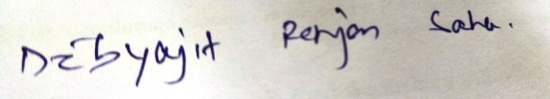 Debyajit Renjon Saha.